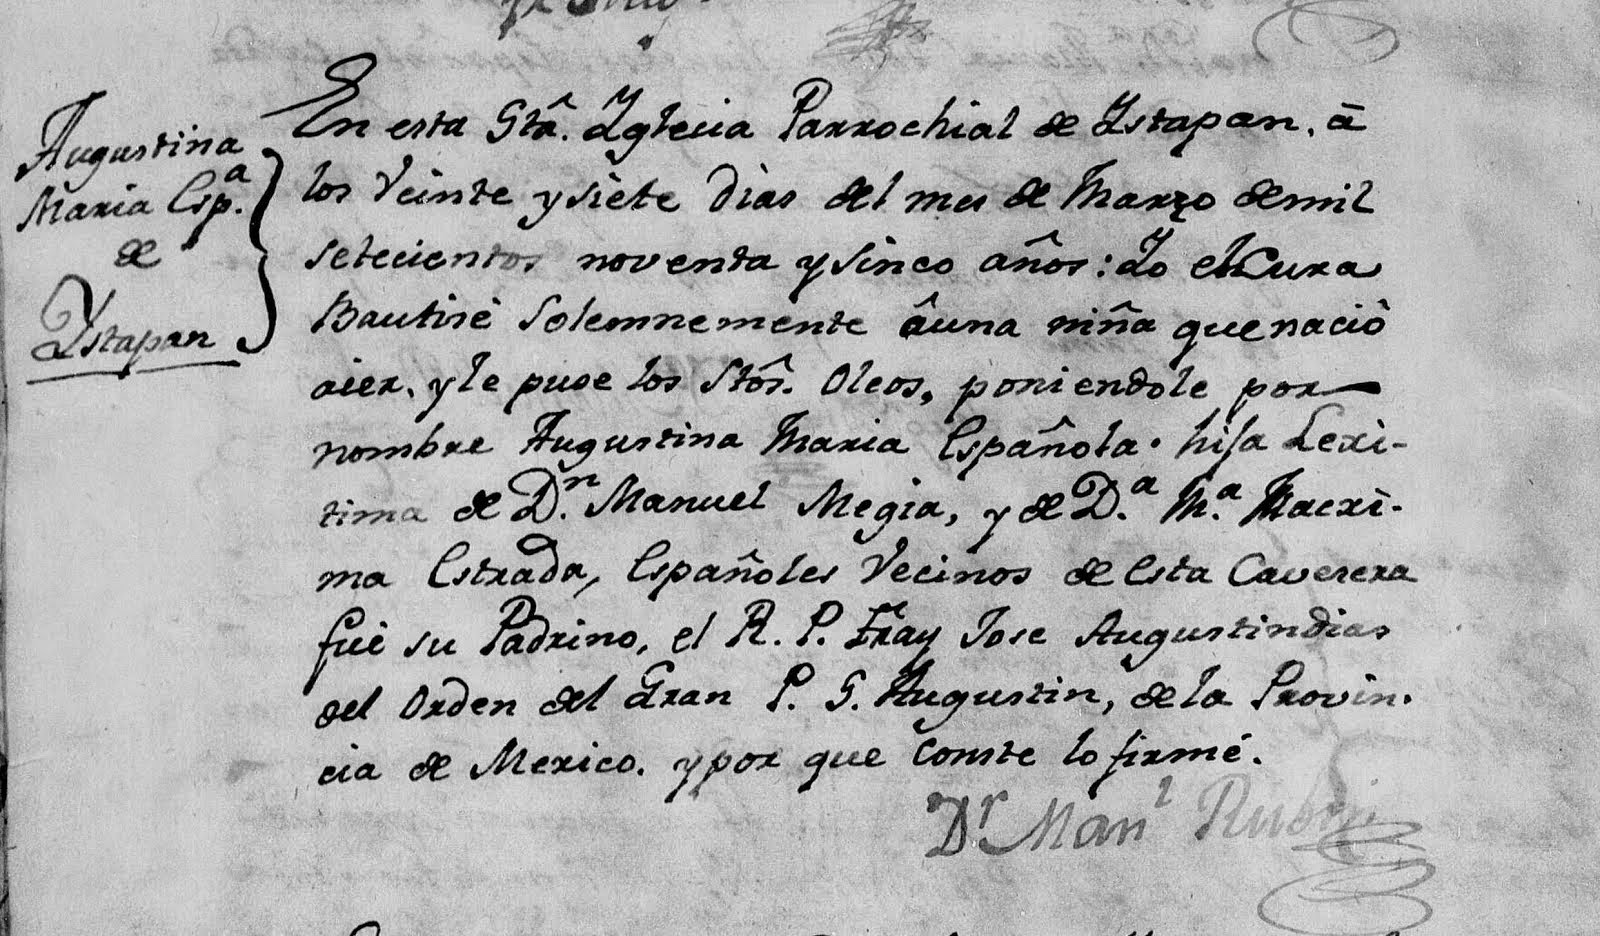 Augustina
Maria Esp.ª
de
Ystapan
En esta Stâ. Yglecia Parrochial de Ystapan, â
los Veinte y siete dias del mes de Marzo de mil
setecientos noventa y sinco años: Yo el Cura
Bautisè Solemnemente âuna niña que naciô
aier, y le puse los Stôs. Oleos, poniendole por
nombre Augustina Maria Española. hija Lexi-
tima de D.n Manuel Megia, y de D.ª M.ª Macxi-
ma Estrada, Españoles Vecinos de esta Cavesera
fuè su Padrino, el R. P. Fray Jose Augustin dias
del Orden del Gran P. S. Augustin, de la Provin-
cia de Mexico. y por que conste lo firmé.
Dr Manl Rubin